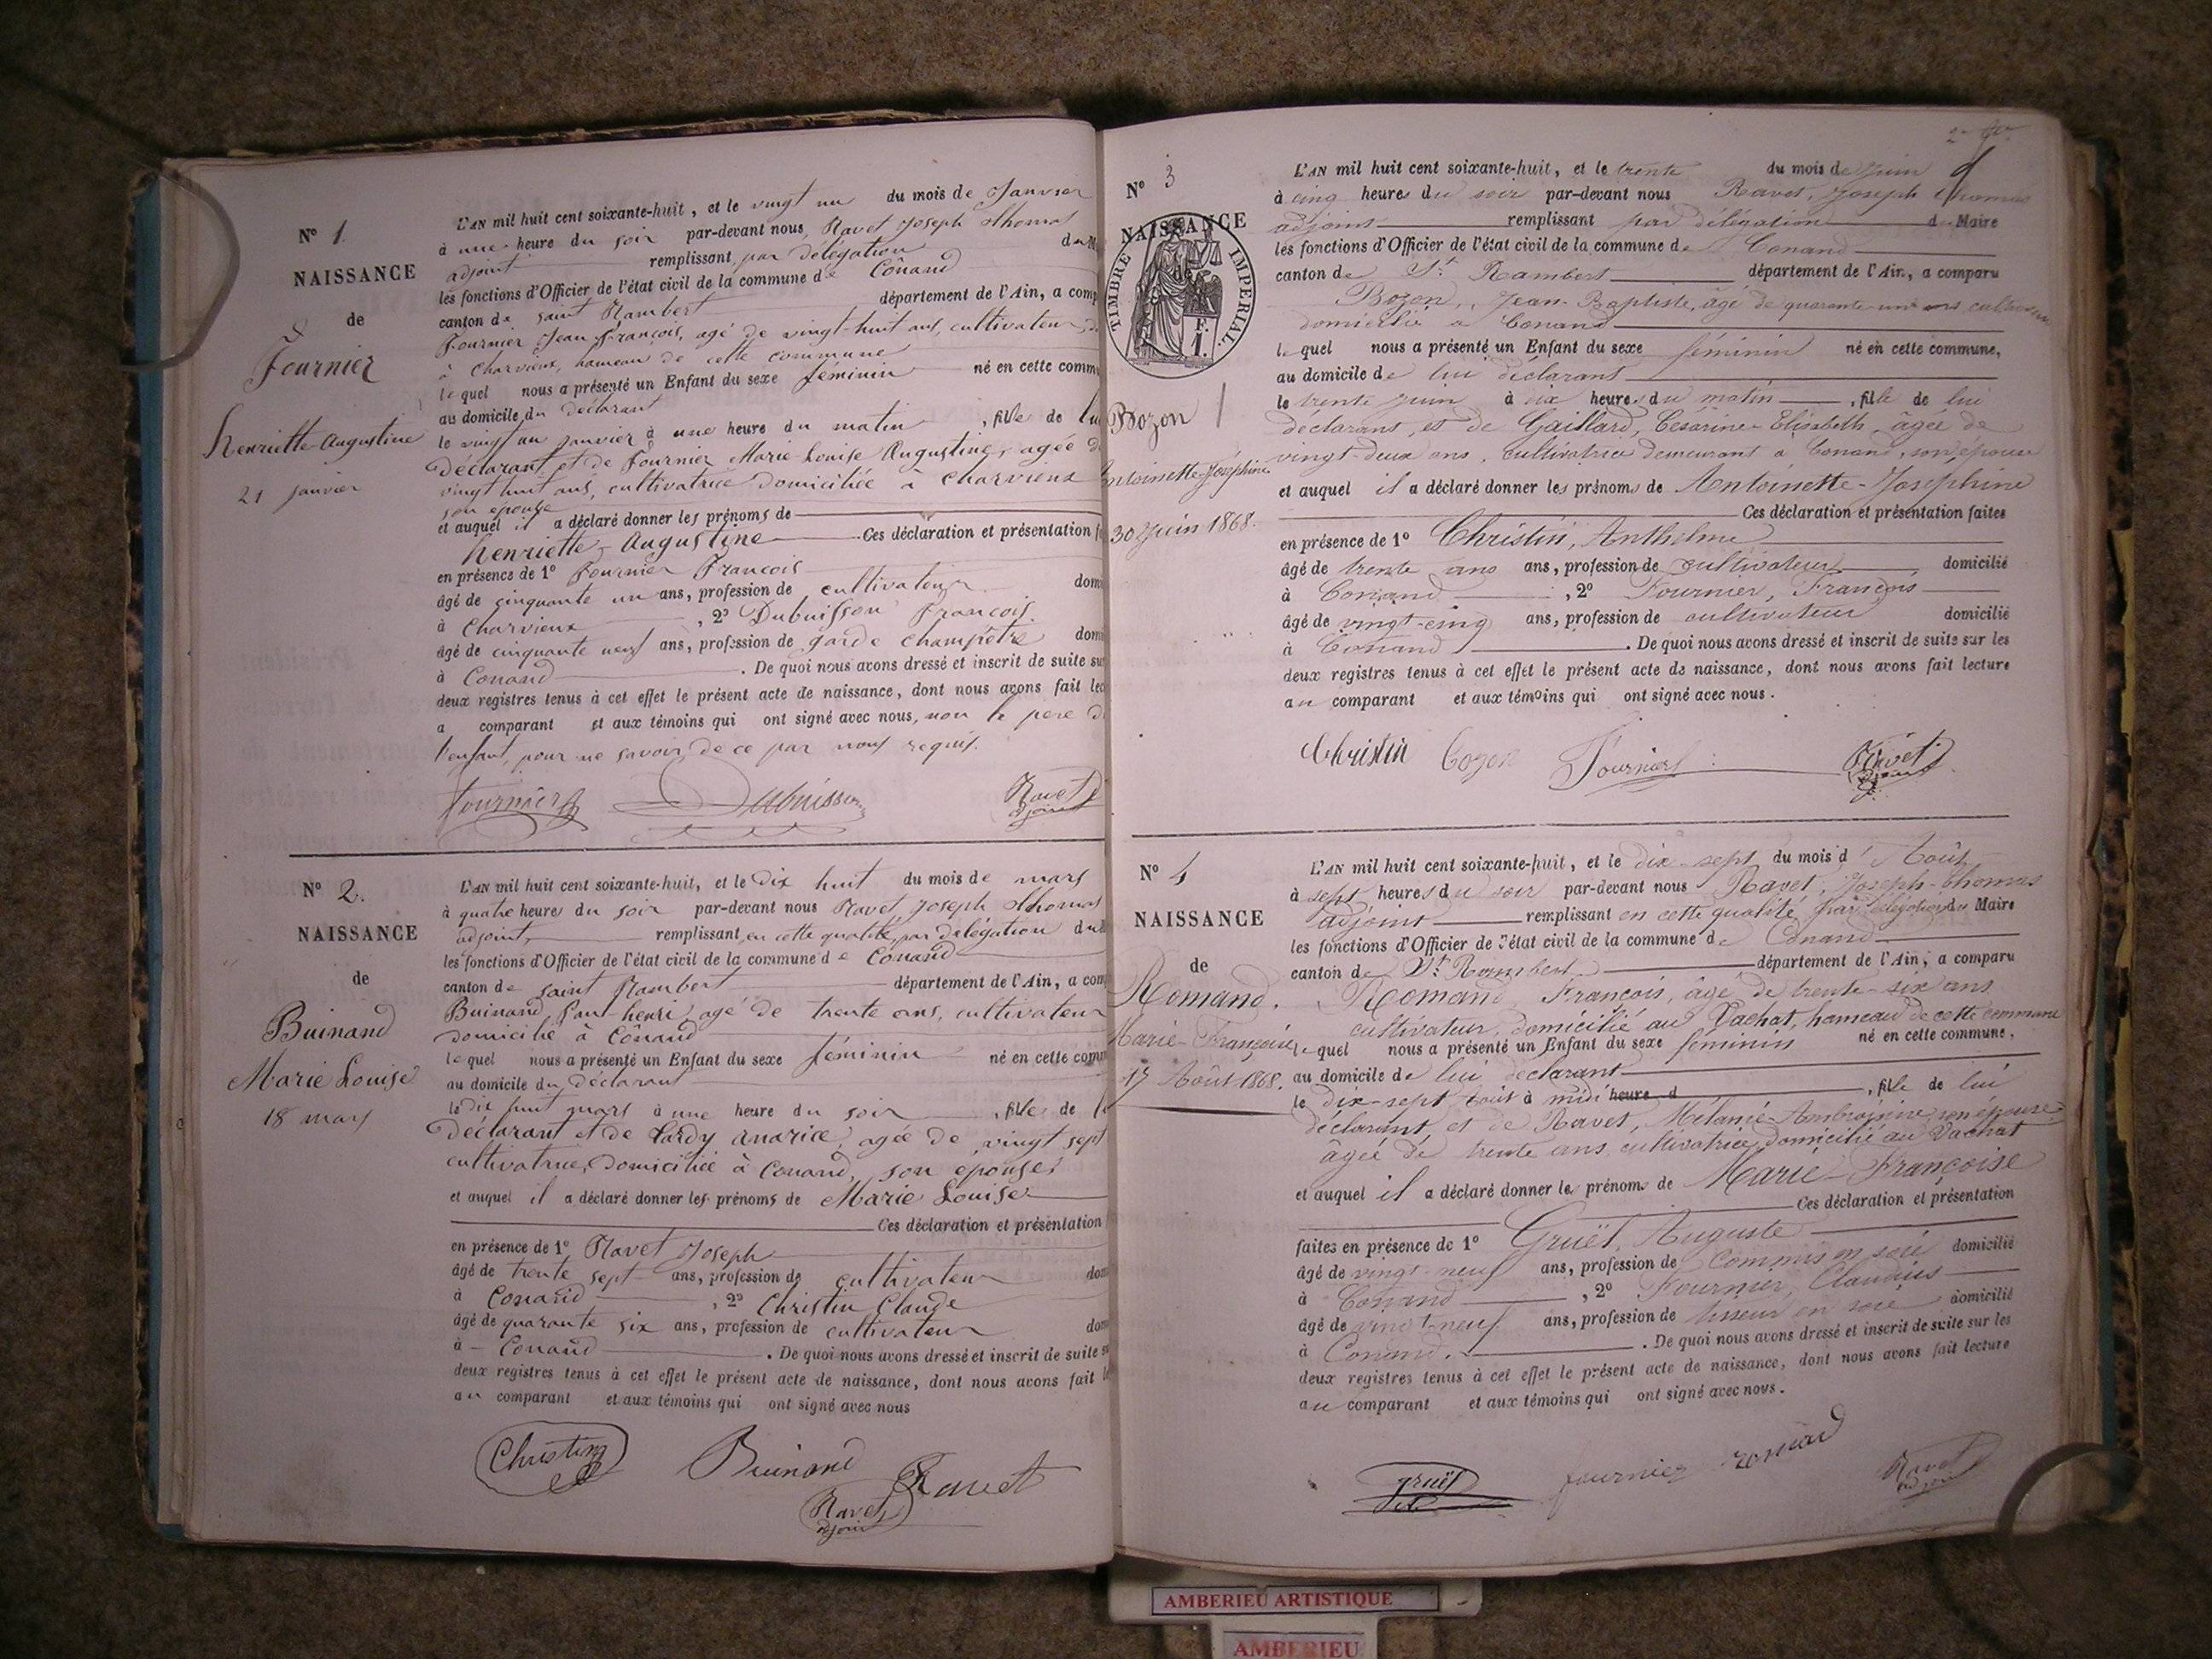 Nº 1.
NAISSANCE
de
Fournier
Henriette-Augustine
21 janvier
L'AN mil huit cent soixante-huit, et le vingt un du mois de Janvier
à une heure du soir par-devant nous, Ravet Joseph Thomas
adjoint remplissant par délégation du M
les fonctions d'Officier de l'état civil de la commune de Cônand
canton de saint Rambert département de l'Ain, a comp
Fournier Jean François, agé de vingt-huit ans, cultivateur
à Charvieux, hameau de cette commune
lequel nous a présenté un Enfant du sexe féminin né en cette comm
au domicile du déclarant
le vingt un janvier à une heure du matin, fille de lui
Déclarant, et de Fournier Marie-Louise Augustine, agée d
vingt huit ans, cultivatrice domiciliée à Charvieux
son epouse
et auquel il a déclaré donner les prénoms de
henriette-Augustine Ces déclaration et présentation f
en présence de 1º Fournier François
âgé de cinquante un ans, profession de cultivateur dom
à Charvieux, 2º Dubuisson François
âgé de cinquante neuf ans, profession de garde champêtre domi
à Conand. De quoi nous avons dressé et inscrit de suite su
deux registres tenus à cet effet le présent acte de naissance, dont nous avons fait lec
a comparant et aux témoins qui ont signé avec nous, non le pere d
l'enfant, pour ne savoir, de ce par nous requis.
Fournier Dubuisson Ravet
adjoint
Nº 2.
NAISSANCE
de
Buinand
Marie Louise
18 mars
L'AN mil huit cent soixante-huit, et le Dix huit du mois de mars
à quatre heures du soir par-devant nous Ravet Joseph Thomas
adjoint, remplissant en cette qualité, par délégation du
les fonctions d'Officier de l'état civil de la commune de Conand
canton de saint Rambert département de l'Ain, a com
Buinand Paul-henri, agé de trente ans, cultivateur
domicilié à Cônand
lequel nous a présenté un Enfant du sexe féminin né en cette comm
au domicile du déclarant
le dix huit mars à une heure du soir, fille de l
Déclarant et de Lardy agée de vingt sept
cultivatrice, domiciliée à Conand, son épouse
et auquel il a déclaré donner les prénoms de Marie Louise
Ces déclaration et présentation
en présence de 1º Ravet Joseph
âgé de trente sept ans, profession de cultivateur dom
à Conand, 2º Christin Claude
âgé de quarante six ans, profession de cultivateur dom
à Conand. De quoi nous avons dressé et inscrit de suite s
deux registres tenus à cet effet le présent acte de naissance, dont nous avons fait le
au comparant et aux témoins qui ont signé avec nous
Christin Buinand Ravet
Ravet
adjoint
Nº 3
NAISSANCE
de
TIMBRE IMPERIAL.
F.
1.
Bozon
Antoinette-Joséphine
30 Juin 1868.
L'AN mil huit cent soixante-huit, et le trente du mois de Juin
à cinq heures du soir par-devant nous Ravet, Joseph Thomas
adjoint remplissant par délégation du Maire
les fonctions d'Officier de l'état civil de la commune de Conand
canton de St. Rambert département de l'Ain, a comparu
Bozon, Jean-Baptiste, âgé de quarante-un ans cultivateur
domicilié à Conand
lequel nous a présenté un Enfant du sexe féminin né en cette commune,
au domicile de lui déclarant
le trente juin à six heures du matin, fille de lui
déclarant, et de Gaillard, Césarine-Elisabeth, âgée de
vingt-deux ans, cultivatrice demeurant à Conand, son épouse
et auquel il a déclaré donner les prénoms de Antoinette-Joséphine
Ces déclaration et présentation faites
en présence de 1º Christin, Anthelme
âgé de trente ans ans, profession de cultivateur domicilié
à Conand, 2º Fournier, François
âgé de vingt-cinq ans, profession de cultivateur domicilié
à Conand. De quoi nous avons dressé et inscrit de suite sur les
deux registres tenus à cet effet le présent acte de naissance, dont nous avons fait lecture
au comparant et aux témoins qui ont signé avec nous.
Christin Bozon Fournier Ravet
adjoint
Nº 4
NAISSANCE
de
Romand.
Marie-Françoise
17 Août 1868.
L'AN mil huit cent soixante-huit, et le dix-sept du mois d'Août
à sept heures du soir par-devant nous Ravet, Joseph-Thomas
adjoint remplissant en cette qualité par délégation du Maire
les fonctions d'Officier de l'état civil de la commune de Conand
canton de St. Rambert département de l'Ain, a comparu
Romand François, âgé de trente-six ans
cultivateur, domicilié au Vachat, hameau de cette commune
lequel nous a présenté un Enfant du sexe féminin né en cette commune,
au domicile de lui déclarant
le dix-sept août à midi heure d, fille de lui
déclarant et de Ravet, Mélanie-Ambroisine son épouse
âgée de trente ans, cultivatrice, domicilié au Vachat
et auquel il a déclaré donner les prénoms de Marie-Françoise
Ces déclaration et présentation
faites en présence de 1º Gruët, Auguste
âgé de vingt-neuf ans, profession de Commis en soie domicilié
à Conand, 2º Fournier, Claudius
âgé de vingt-neuf ans, profession de tisseur en soie domicilié
à Conand. De quoi nous avons dressé et inscrit de suite sur les
deux registres tenus à cet effet le présent acte de naissance, dont nous avons fait lecture
au comparant et aux témoins qui ont signé avec nous.
gruët fournier romand Ravet
adjoint
AMBERIEU ARTISTIQUE
AMBERIEU